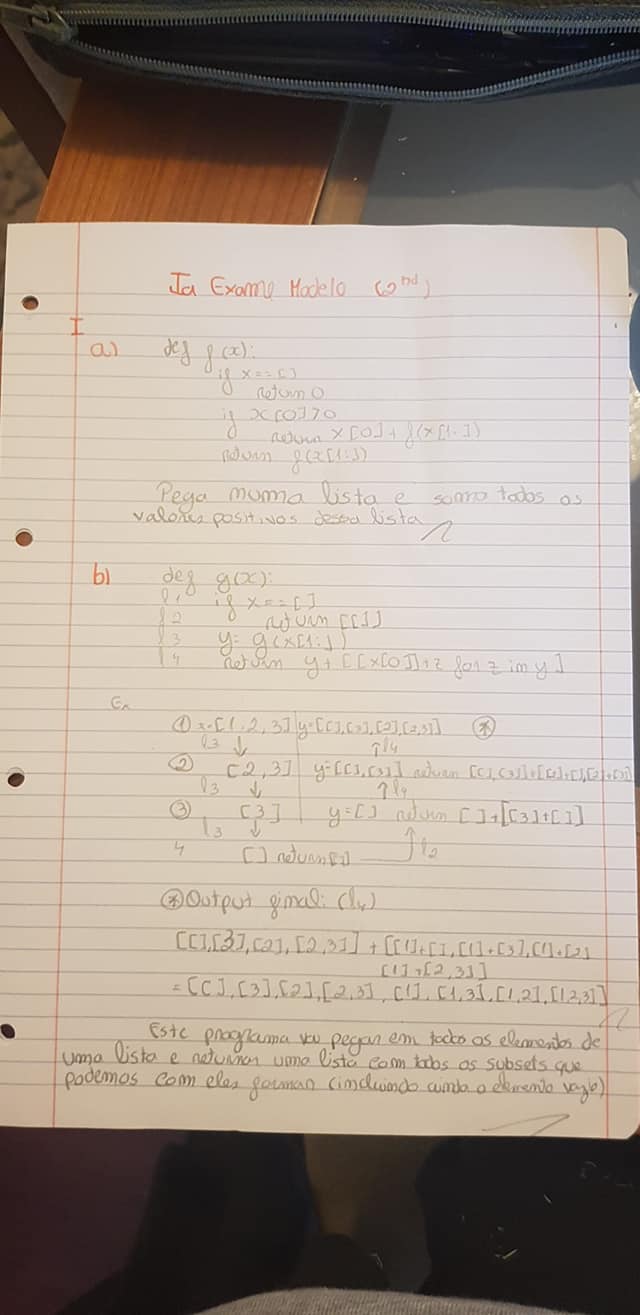 Ia Exame Modelo (2nd)
I
a) def f(x):
if x==[]
return 0
if x[0]>0
return x[0]+f(x[1:])
return f(x[1:])
Pega numa lista e soma todos os
valores positivos dessa lista
b) def g(x):
l1 if x==[]
l2 return [[]]
l3 y=g(x[1:])
l4 return y+[[x[0]]+z for z in y]
Ex
① x=[1,2,3] y=[[],[3],[2],[2,3]] ⊛
l3 ↓ ↑l4
② [2,3] y=[[],[3]] return [[],[3]]+[[2]+[],[2]+[3]]
l3 ↓ ↑l4
③ [3] y=[] return []+[[3]+[]]
l3 ↓ ↑l2
4 [] return[]
⊛Output final: (l4)
[[],[3],[2],[2,3]]+[[1]+[],[1]+[3],[1]+[2]
[1]+[2,3]]
=[[],[3],[2],[2,3],[1],[1,3],[1,2],[1,2,3]]
Este programa vai pegar em todos os elementos de
uma lista e retornar uma lista com todos os subsets que
podemos com eles formar (incluindo ainda o elemento vazio)